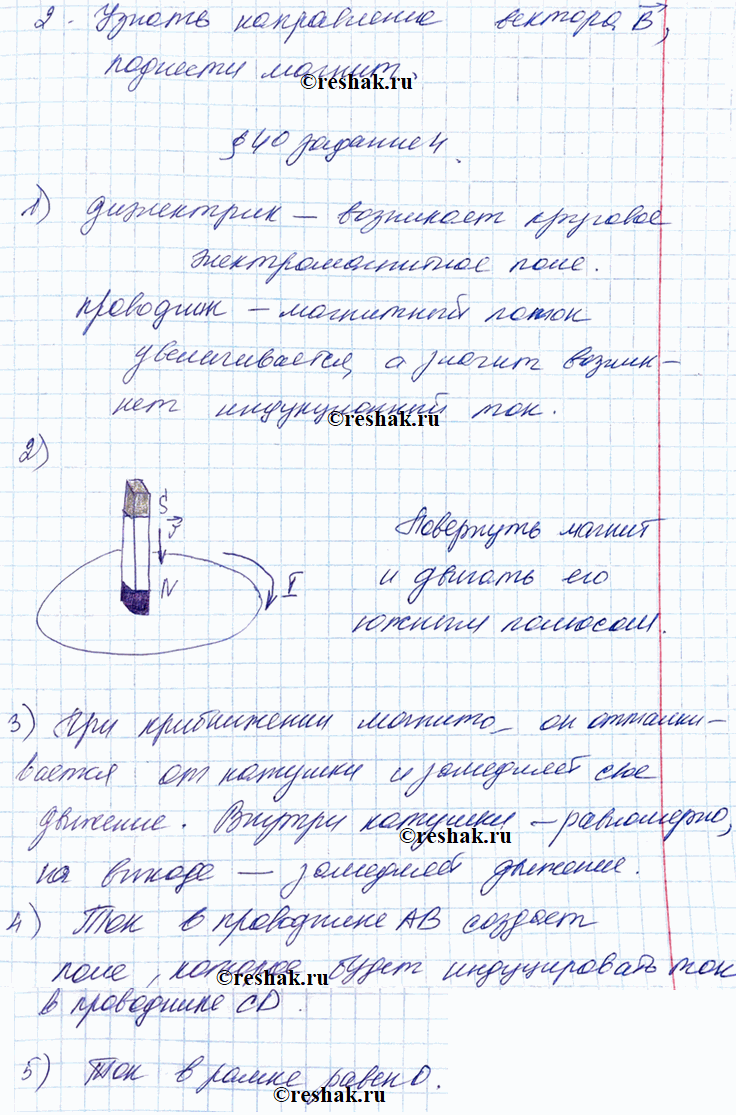 2. Узнать направление вектора B,
поднести магнит.
©reshak.ru
§ 40 задание 4.
1) диэлектрик – возникает круговое
электромагнитное поле.
проводник – магнитный поток
увеличивается, а значит возник-
нет индукционный ток.
©reshak.ru
2)
S
v
N
I
Повернуть магнит
и двигать его
южным полюсом.
3) При приближении магнита он отталки-
вается от катушки и замедляет свое
движение. Внутри катушки – равномерно,
©reshak.ru
на выходе – замедляет движение.
4) Ток в проводнике AB создает
поле, которое будет индуцировать ток
©reshak.ru
в проводнике CD.
5) Ток в рамке равен 0.
©reshak.ru